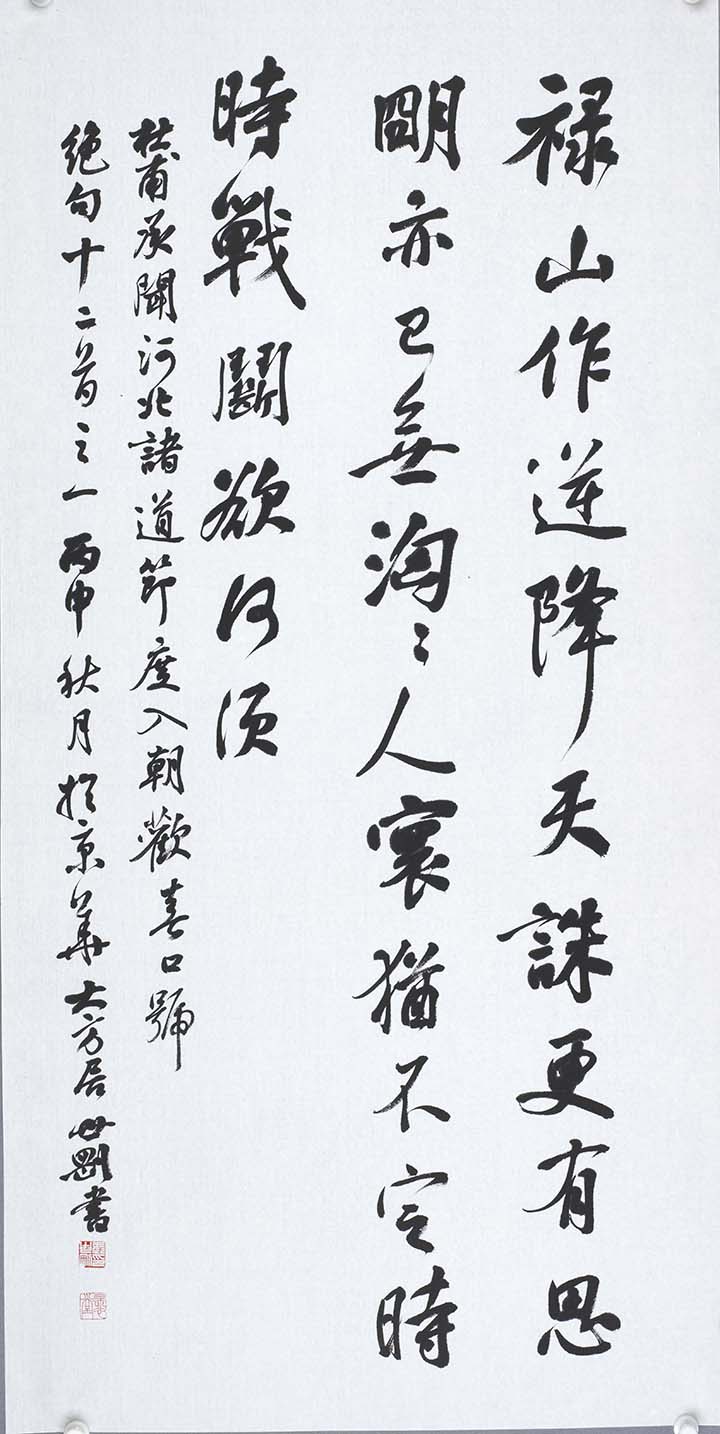 禄山作逆降天誅更有思
明亦已無洶〻人寰猶不定時
時戰鬭欲何須
杜甫承聞河北諸道節度入朝歡喜口號
絕句十二首之一丙申秋月於京華大方居世剛書